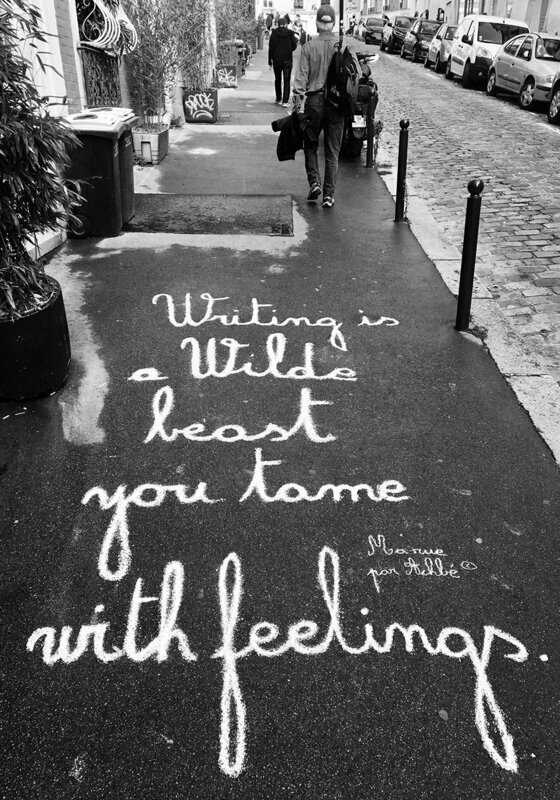 Writing is
a Wilde
beast
you tame
with feelings.
Ma rue
par Achbé©